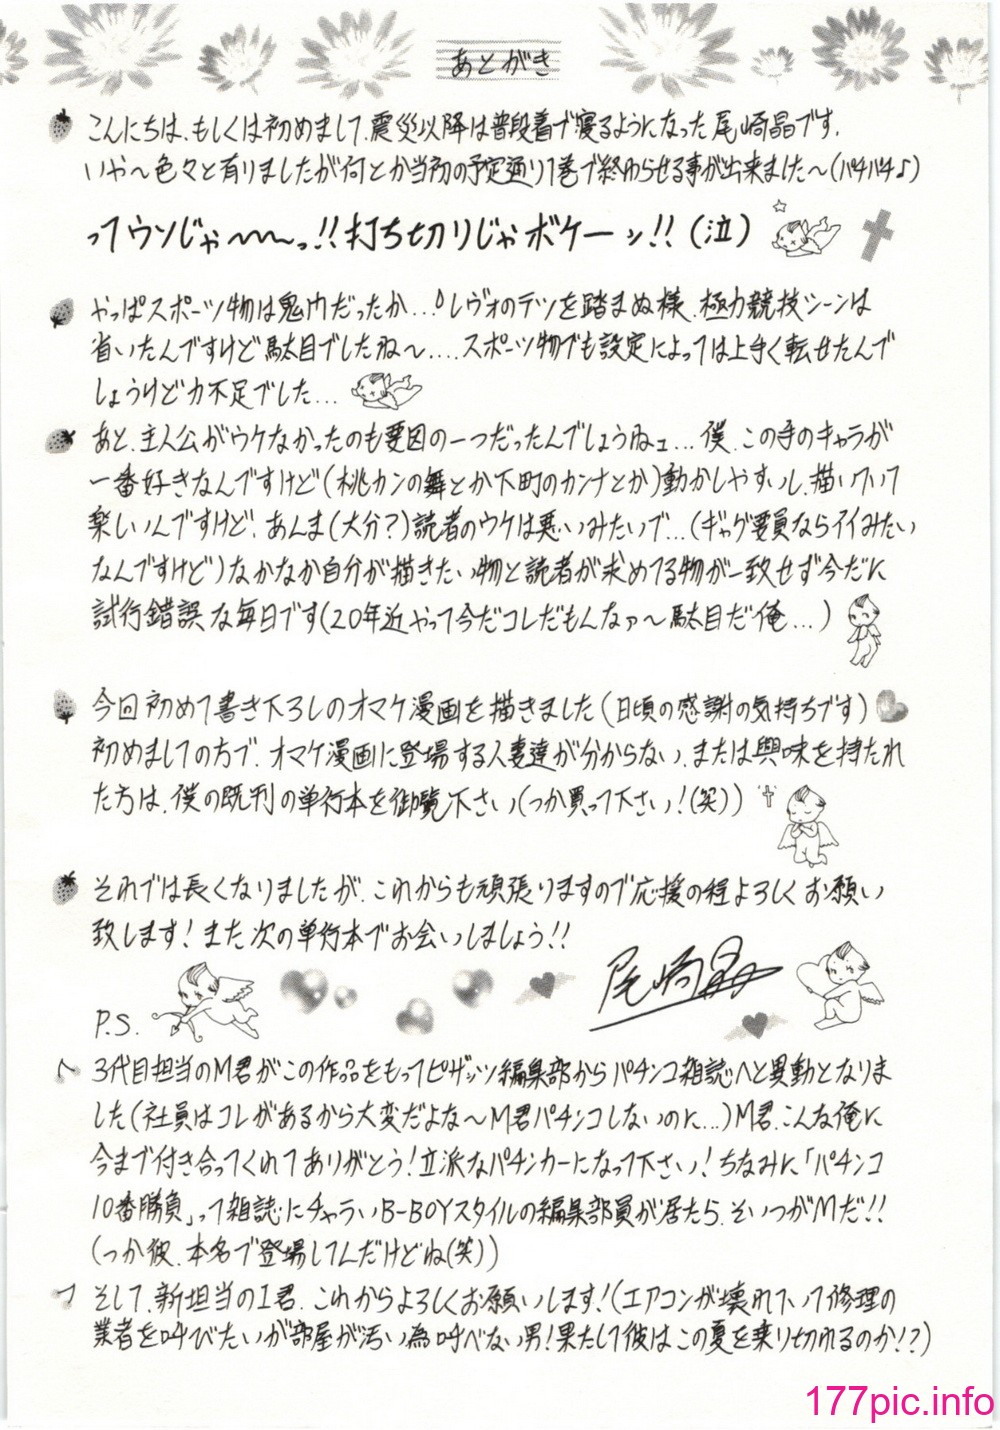 あとがき
こんにちは、もしくは初めまして、震災以降は普段着で寝るようになった尾崎晶です。
いや〜色々と有りましたが何とか当初の予定通り1巻で終わらせる事が出来ました〜(パチパチ♪)
ってウソじゃ〜〜〜っ!!打ち切りじゃボケーッ!!(泣)
やっぱスポーツ物は鬼門だったか...!レヴォのテツを踏まぬ様、極力競技シーンは
省いたんですけど駄目でしたね〜....スポーツ物でも設定によっては上手く転せたんで
しょうけど力不足でした...
あと、主人公がウケなかったのも要因の一つだったんでしょうねェ...僕、この手のキャラが
一番好きなんですけど(桃カンの舞とか下町のカンナとか)動かしやすいし、描いてて
楽しいんですけど、あんま(大分?)読者のウケは悪いみたいで...(ギャグ要員ならイイみたい
なんですけど)なかなか自分が描きたい物と読者が求めてる物が一致せず今だに
試行錯誤な毎日です(20年近やって今だコレだもんなァ〜駄目だ俺...)
今回初めて書き下ろしのオマケ漫画を描きました(日頃の感謝の気持ちです)
初めましての方で、オマケ漫画に登場する人妻達が分からない、または興味を持たれ
た方は、僕の既刊の単行本を御覧下さい(つか買って下さい!(笑))
それでは長くなりましたが、これからも頑張りますので応援の程よろしくお願い
致します!また次の単行本でお会いしましょう!!
尾崎晶
P.S.
3代目担当のM君がこの作品をもってピザッツ編集部からパチンコ雑誌へと異動となりま
した(社員はコレがあるから大変だよな〜M君パチンコしないのに...)M君、こんな俺に
今まで付き合ってくれてありがとう!立派なパチンカーになって下さい!ちなみに「パチンコ
10番勝負」って雑誌にチャラいB-BOYスタイルの編集部員が居たら、そいつがMだ!!
(つか彼、本名で登場してんだけどね(笑))
そして、新担当のI君、これからよろしくお願いします!(エアコンが壊れていて修理の
業者を呼びたいが部屋が汚い為呼べない男!果たして彼はこの夏を乗り切れるのか!?)
177pic.info